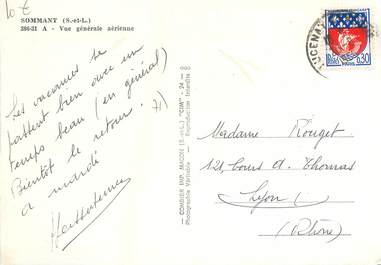 10 €
SOMMANT (S.-et-L.)
286-31 A - Vue générale aérienne
Les vacances se
passent bien avec un
temps beau (en général)
Bientôt le retour :
à mardi
— COMBIER IMP. MACON (S.-et-L.) "CIM" - 24 —
Photographie Véritable - Reproduction Interdite
LUCENAY
0,30
Madame Rouget
121, Cours A. Thomas
Lyon
(Rhône)